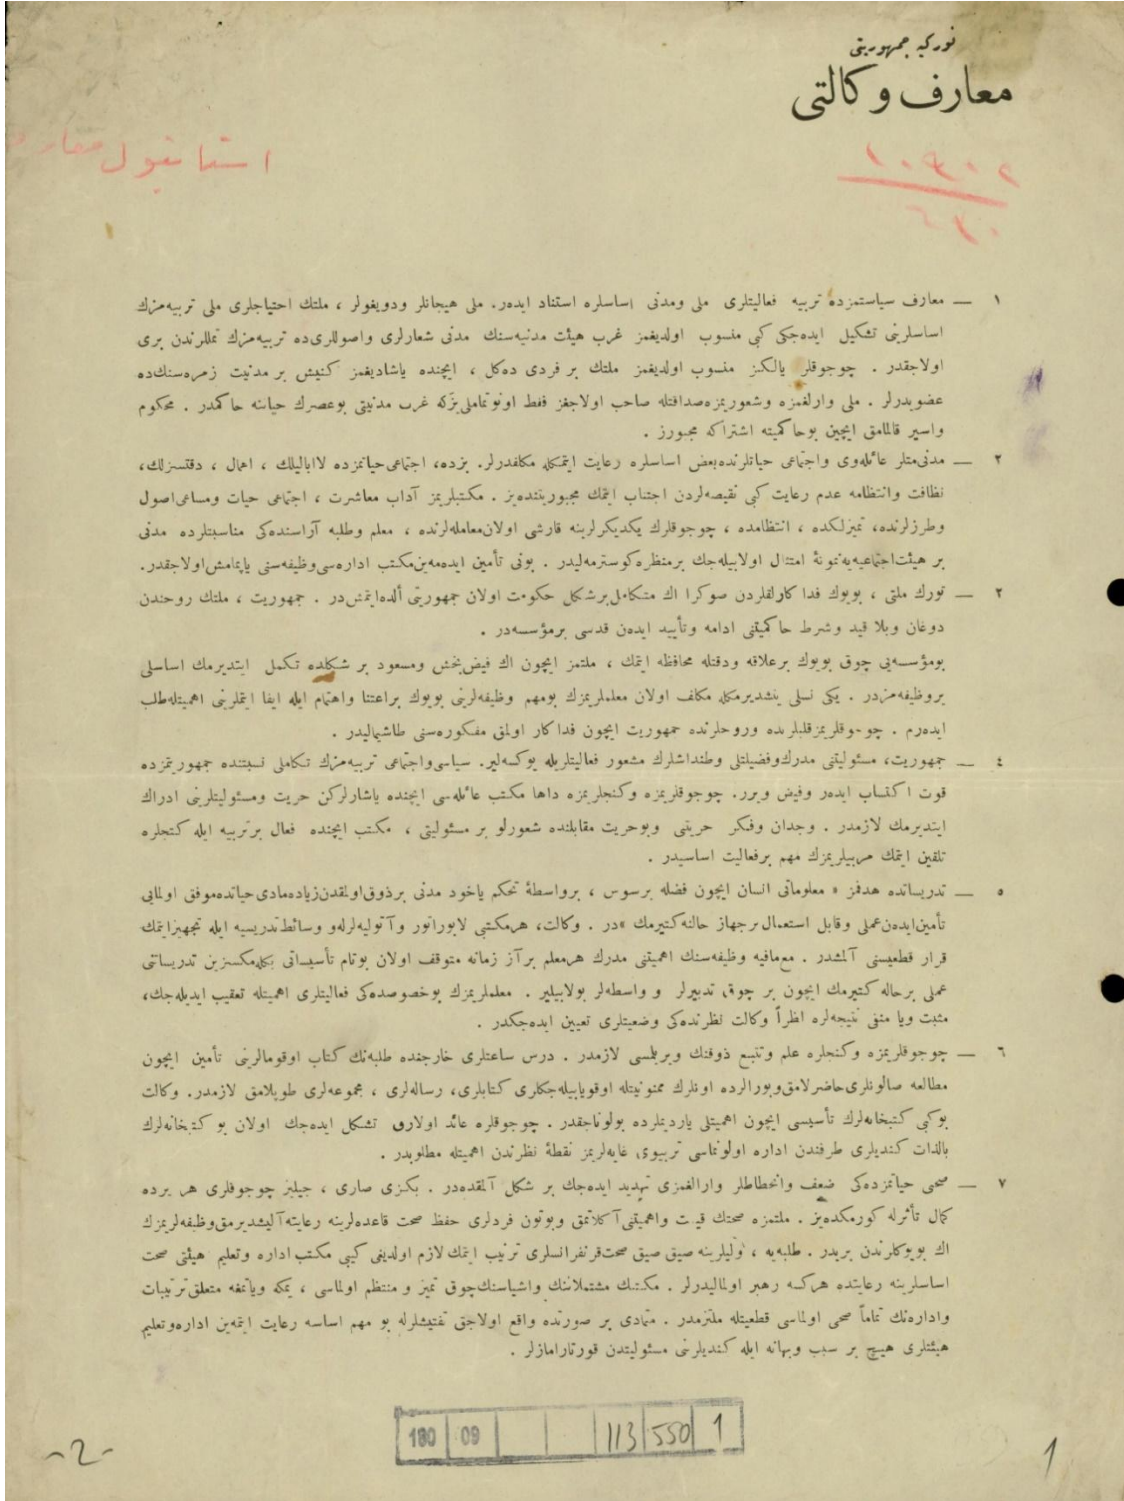 تورکیه جمهوریتی
معارف وکالتی
استانبول معارف
۱ — معارف سیاستمزده تربیه فعالیتلری ملی ومدنی اساسلره استناد ایدەر. ملی هیجانلر ودویغولر ، ملتك احتیاجلری ملی تربیه‌مزك
اساسلرینی تشکیل ایده‌جکی کبی منسوب اولدیغمز غرب هیئت مدنیه‌سنك مدنی شعارلری واصوللری‌ده تربیه‌مزك تمللرندن بری
اولاجقدر . چوجوقلر یالکز منسوب اولدیغمز ملتك بر فردی ده‌کل ، ایچنده یاشادیغمز کنیش بر مدنیت زمره‌سنك‌ده
عضویدرلر . ملی وارلغمزه وشعوریمزه صداقتله صاحب اولاجغز فقط اونوتماملی‌یزکه غرب مدنیتی بوعصرك حیاتنه حاکمدر . محکوم
واسیر قالمامق ایچین بوحاکمیته اشتراکه مجبورز .
۲ — مدنی‌متلر عائله‌وی واجتماعی حیاتلرنده بعض اساسلره رعایت ایتمکله مکلفدرلر. بزده، اجتماعی‌حیاتمزده لاابالیلك ، اهمال ، دقتسزلك،
نظافت وانتظامه عدم رعایت کبی نقیصه‌لردن اجتناب ایتمك مجبوریتنده‌یز . مکتبلریمز آداب معاشرت ، اجتماعی حیات ومساعی‌اصول
وطرزلرنده، تمیزلکده ، انتظامده ، چوجوقلرك یکدیکرلرینه قارشی اولان‌معامله‌لرنده ، معلم وطلبه آراسنده‌کی مناسبتلرده مدنی
بر هیئت‌اجتماعیه‌یه نمونهٔ امتثال اولابیله‌جك برمنظره کوسترمه‌لیدر . بونی تأمین ایده‌مه‌ین‌مکتب اداره‌سی‌وظیفه‌سنی یاپمامش‌اولاجقدر.
۲ — تورك ملتی ، بویوك فدا کارلقلردن صوکرا اك متکامل‌برشکل حکومت اولان جمهوریتی ألده‌ایتمش‌در . جمهوریت ، ملتك روحندن
دوغان وبلا قید وشرط حاکمیتنی ادامه وتأیید ایدەن قدسی برمؤسسه‌در .
بومؤسسه‌یی چوق بویوك برعلاقه ودقتله محافظه ایتمك ، ملتمز ایچون اك فیض‌بخش ومسعود بر شکلده تکمل ایتدیرمك اساسلی
بروظیفه‌مزدر . یکی نسلی یتشدیرمکله مکلف اولان معلملریمزك بومهم وظیفه‌لرینی بویوك براعتنا واهتمام ایله ایفا ایتملرینی اهمیتله‌طلب
ایدەرم . چوجوقلریمزقلبلرنده وروحلرنده جمهوریت ایچون فدا کار اولمق مفکوره‌سنی طاشیمالیدر .
٤ — جمهوریت، مسئولیتنی مدرك‌وفضیلتلی وطنداشلرك مشعور فعالیتلریله یوکسه‌لیر. سیاسی‌واجتماعی تربیه‌مزك تکاملی نسبتنده جمهوریتمزده
قوت اکتساب ایدەر وفیض ویرر. چوجوقلریمزه وکنجلریمزه داها مکتب عائله‌سی ایچنده یاشارلرکن حریت ومسئولیتلرینی ادراك
ایتدیرمك لازمدر . وجدان وفکر حریتی وبوحریت مقابلنده شعورلو بر مسئولیتی ، مکتب ایچنده فعال برتربیه ایله کنجلره
تلقین ایتمك مربیلریمزك مهم برفعالیت اساسیدر .
٥ — تدریساتده هدفمز « معلوماتی انسان ایچون فضله برسوس ، برواسطهٔ تحکم یاخود مدنی برذوق‌اولمقدن‌زیاده‌مادی‌حیاتده‌موفق اولمایی
تأمین‌ایدەن‌عملی وقابل استعمال برجهاز حالنه‌کتیرمك »در . وکالت، هرمکتبی لابوراتور وآتولیه‌لرله‌و وسائط‌تدریسیه ایله تجهیزایتمك
قرار قطعیسنی آلمشدر . مع‌مافیه وظیفه‌سنك اهمیتنی مدرك هرمعلم برآز زمانه متوقف اولان بوتام تأسیساتی بکله‌مکسزین تدریساتنی
عملی برحاله کتیرمك ایچون بر چوق تدبیرلر و واسطه‌لر بولابیلیر . معلملریمزك بوخصوصده‌کی فعالیتلری اهمیتله تعقیب ایدیله‌جك،
مثبت ویا منفی نتیجه‌لره نظراً وکالت نظرنده‌کی وضعیتلری تعیین ایده‌جکدر .
٦ — چوجوقلریمزه وکنجلره علم وتتبع ذوقنك ویریلمسی لازمدر . درس ساعتلری خارجنده طلبه‌نك کتاب اوقومالرینی تأمین ایچون
مطالعه صالونلری‌حاضرلامق‌وبورالرده اونلرك ممنونیتله اوقویابیله‌جکلری کتابلری، رساله‌لری ، مجموعه‌لری طوپلامق لازمدر. وکالت
بوکبی کتبخانه‌لرك تأسیسی ایچون اهمیتلی یاردیملرده بولوناجقدر . چوجوقلره عائد اولارق تشکل ایده‌جك اولان بو کتبخانه‌لرك
بالذات کندیلری طرفندن اداره اولونماسی تربیوی غایه‌لریمز نقطهٔ نظرندن اهمیتله مطلوبدر .
۷ — صحی حیاتمزده‌کی ضعف وانحطاطلر وارلغمزی تهدید ایده‌جك بر شکل آلمقده‌در . بکزی صاری ، جیلیز چوجوقلری هر یرده
کمال تأثرله کورمکده‌یز . ملتمزه صحتك قیمت واهمیتنی آکلاتمق وبوتون فردلری حفظ صحت قاعده‌لرینه رعایته آلیشدیرمق‌وظیفه‌لریمزك
اك بویوکلرندن بریدر . طلبه‌یه ، ولیلرینه صیق صیق صحت‌قونفرانسلری ترتیب ایتمك لازم اولدیغی کیبی مکتب اداره وتعلیم هیئتی صحت
اساسلرینه رعایتده هرکسه رهبر اولمالیدرلر . مکتبك مشتملاتنك واشیاسنك‌چوق تمیز و منتظم اولماسی ، یمکه ویاتمغه متعلق‌ترتیبات
واداره‌نك تماماً صحی اولماسی قطعیتله ملتزمدر . متمادی بر صورتده واقع اولاجق تفتیشلرله بو مهم اساسه رعایت ایتمه‌ین اداره‌وتعلیم
هیئتلری هیچ بر سبب وبهانه ایله کندیلرینی مسئولیتدن قورتارامازلر .
180 09 113 550 1
-2-
1